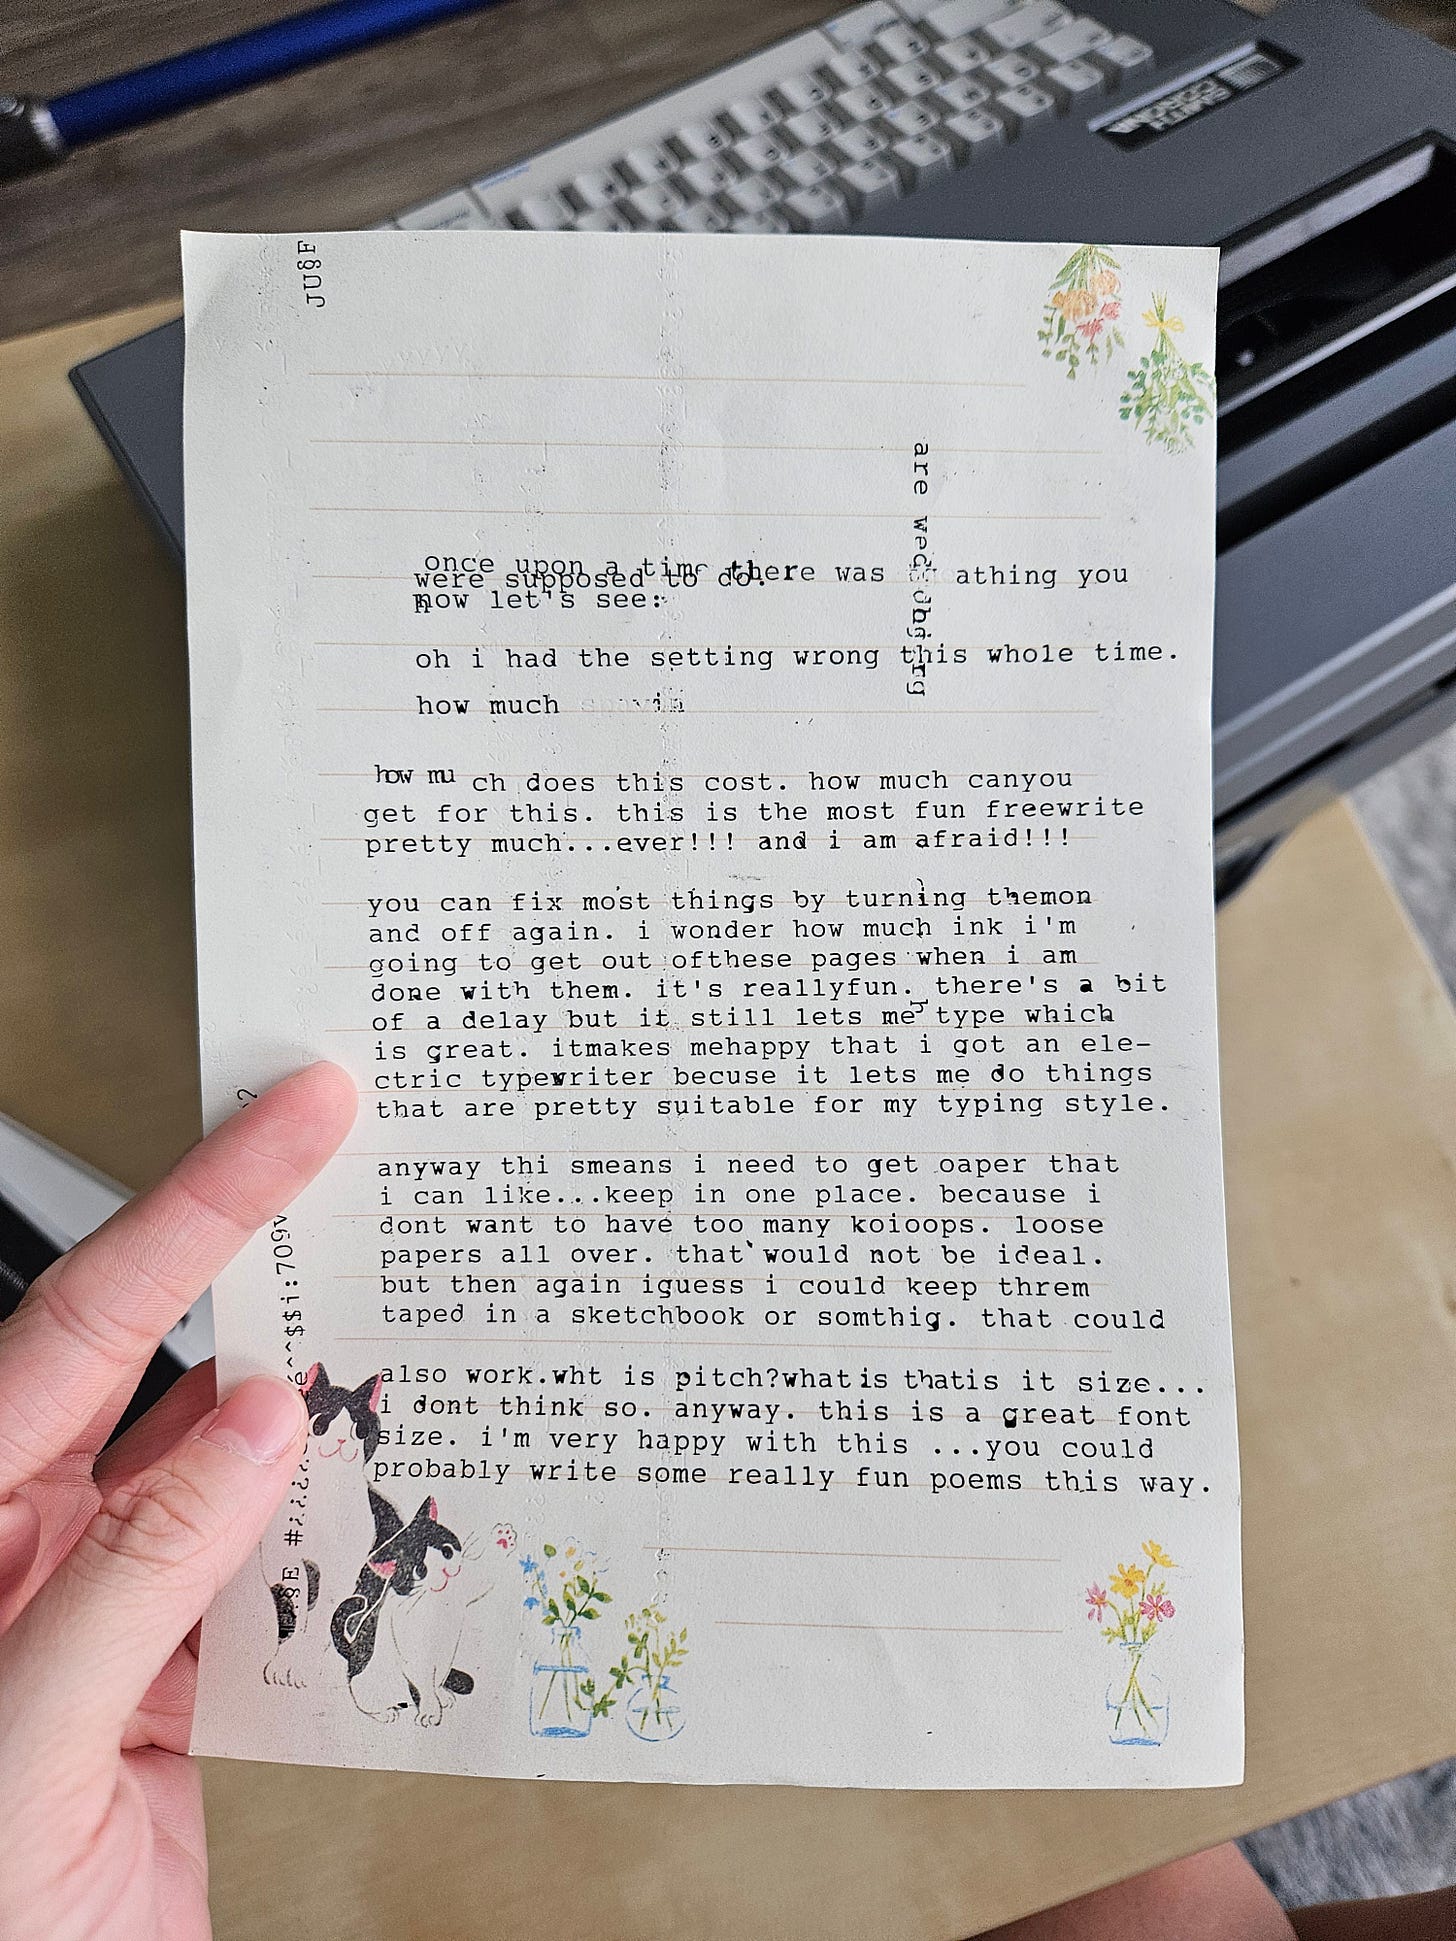 SMITH
CORONA
JU§E
once upon a time there was athing you
were supposed to do.
now let's see:
oh i had the setting wrong this whole time.
how much
how mu ch does this cost. how much canyou
get for this. this is the most fun freewrite
pretty much...ever!!! and i am afraid!!!
you can fix most things by turning themon
and off again. i wonder how much ink i'm
going to get out ofthese pages when i am
done with them. it's reallyfun. there's a bit
of a delay but it still lets me type which
is great. itmakes mehappy that i got an ele-
ctric typewriter becuse it lets me do things
that are pretty suitable for my typing style.
anyway thi smeans i need to get oaper that
i can like...keep in one place. because i
dont want to have too many koioops. loose
papers all over. that would not be ideal.
but then again iguess i could keep threm
taped in a sketchbook or somthig. that could
also work.wht is pitch?whatis thatis it size...
i dont think so. anyway. this is a great font
size. i'm very happy with this ...you could
probably write some really fun poems this way.
are we